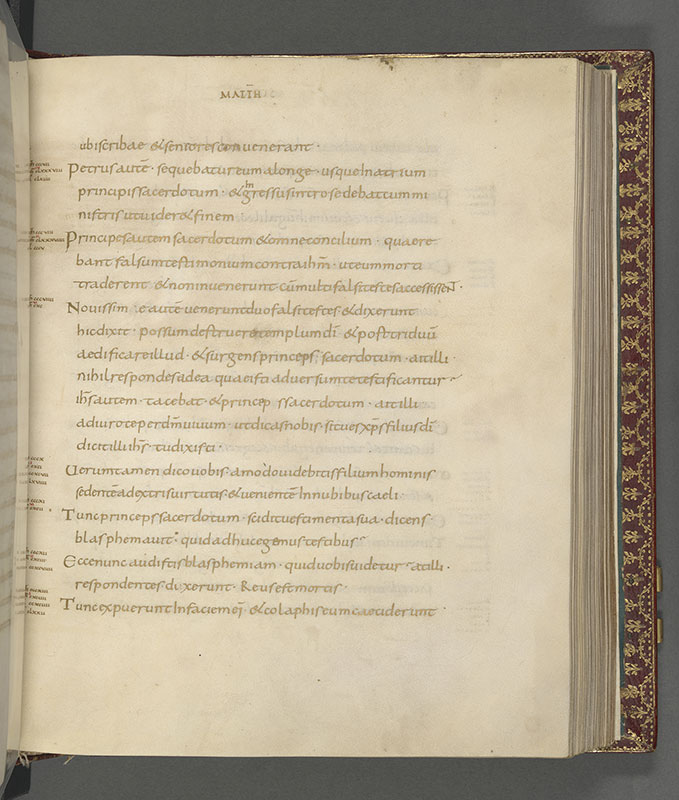 MATTH
ubi scribae & seniores convenerant ·
Petrus autē · sequebatur eum alonge · usque In atrium
principis sacerdotum · & Ingressus intro sedebat cum mi
nistris ut vider& finem
Principes autem sacerdotum & omne concilium · quaere
bant falsum testimonium contra ihm̄ · ut eum morti
traderent · & non invenerunt cū multi falsi testes accessissent ·
Novissime autē venerunt duo falsi testes & dixerunt
hic dixit · possum destruere templum dī & post triduū
aedificare illud · & surgens princeps sacerdotum · ait illi ·
nihil respondes ad ea quae isti adversum te testificantur
ihs̄ autem · tacebat · & princeps sacerdotum · ait illi
adiuro te per dm̄ vivum · ut dicas nobis · si tu es xp̄s filius dī
dicit illi ihs̄ · tu dixisti ·
Uerumtamen dico vobis · amodo videbitis filium hominis
sedentē ad extris virtutis · & venientē In nubibus caeli ·
Tunc princeps sacerdotum · scidit vestimenta sua · dicens
blasphemavit · quid adhuc egemus testibus
Ecce nunc audistis blasphemiam · quid vobis videtur · at illi ·
respondentes dixerunt · Reus est mortis ·
Tunc expuerunt In faciem eī · & colaphis eum caeciderunt ·